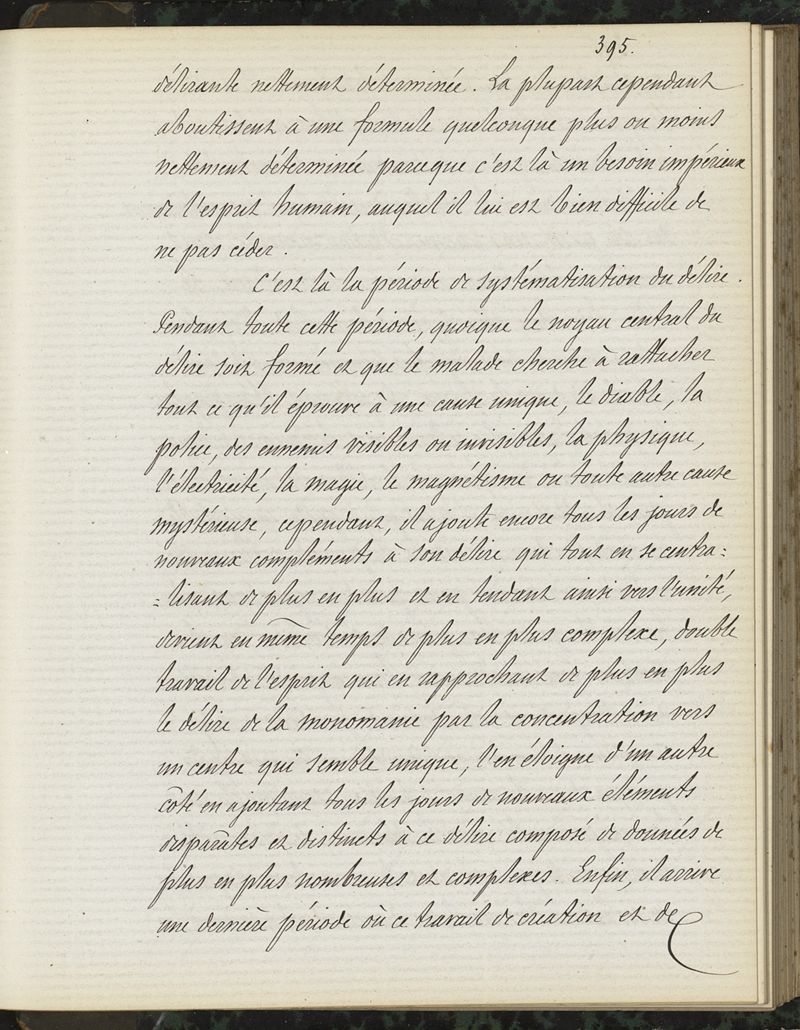 395.
délirante nettement déterminée. La plupart cependant
aboutissent à une formule quelconque plus ou moins
nettement déterminée parceque c'est là un besoin impérieux
de l'esprit humain, auquel il lui est bien difficile de
ne pas céder.
C'est là la période de systématisation du délire.
Pendant toute cette période, quoique le noyau central du
délire soit formé et que le malade cherche à rattacher
tout ce qu'il éprouve à une cause unique, le diable, la
police, des ennemis visibles ou invisibles, la physique,
l'électricité, la magie, le magnétisme ou toute autre cause
mystérieuse, cependant, il ajoute encore tous les jours de
nouveaux compléments à son délire qui tout en se centra=
=lisant de plus en plus et en tendant ainsi vers l'unité,
devient en même temps de plus en plus complexe, double
travail de l'esprit qui en rapprochant de plus en plus
le délire de la monomanie par la concentration vers
un centre qui semble unique, l'en éloigne d'un autre
côté en ajoutant tous les jours de nouveaux éléments
disparates et distincts à ce délire composé de données de
plus en plus nombreuses et complexes. Enfin, il arrive
une dernière période où ce travail de création et de